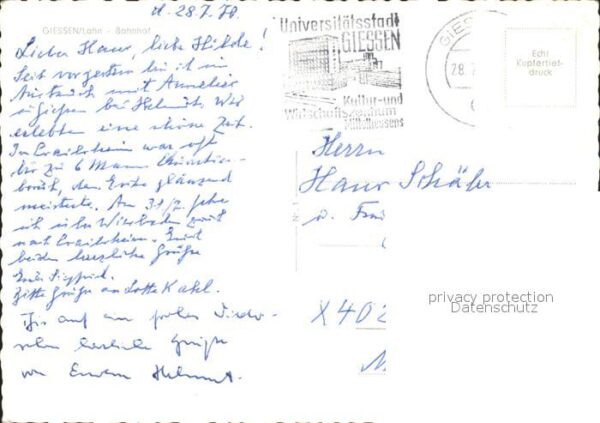 d. 28.7.70.
GIESSEN/Lahn - Bahnhof
Liebe Hans, liebe Hilde!
Seit vorgestern bin ich im
Austausch mit Annelies
in Gießen bei Helmut. Wir
erleben eine schöne Zeit.
In Crailsheim war oft
bis zu 6 Mann
die Erika glänzend
meisterte. Am 31./7. gehe
ich über Wiesbaden zurück
nach Crailsheim. Euch
beiden herzliche Grüße
Euer Siegfried.
Bitte Grüße an Lotte Kahl.
Bis auf ein frohes Wieder-
sehen herzliche Grüße
von Eurem Helmut.
Universitätsstadt
GIESSEN
Kultur- und
Wirtschaftszentrum
Mittelhessens
GIES
28.7
Echt
Kupfertief-
druck
Herrn
Hans Schäfer
u. Frau
X402
privacy protection
Datenschutz